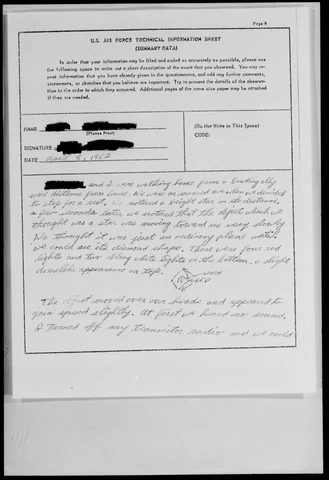 Page 9
U.S. AIR FORCE TECHNICAL INFORMATION SHEET
(SUMMARY DATA)
In order that your information may be filed and coded as accurately as possible, please use
the following space to write out a short description of the event that you observed. You may re-
peat information that you have already given in the questionnaire, and add any further comments,
statements, or sketches that you believe are important. Try to present the details of the observa-
tion in the order in which they occurred. Additional pages of the same size paper may be attached
if they are needed.
NAME
(Please Print)
SIGNATURE
DATE April 9, 1962
(Do Not Write in This Space)
CODE:
and I were walking home from a bowling alley
some distance from home. We were on second ave when we decided
to stop for a rest. We noticed a bright star in the distance,
a few seconds later we noticed that the object which we
thought was a star was moving toward us very slowly
We thought it was just an ordinary plane until
we could see its diamond shape. There were four red
lights and two long white lights on the bottom, a slight
appearance on top.
WHITE
RED
The object moved over our heads and appeared to
gain speed slightly. At first we heard no sound,
I turned off my transistor radio and we could